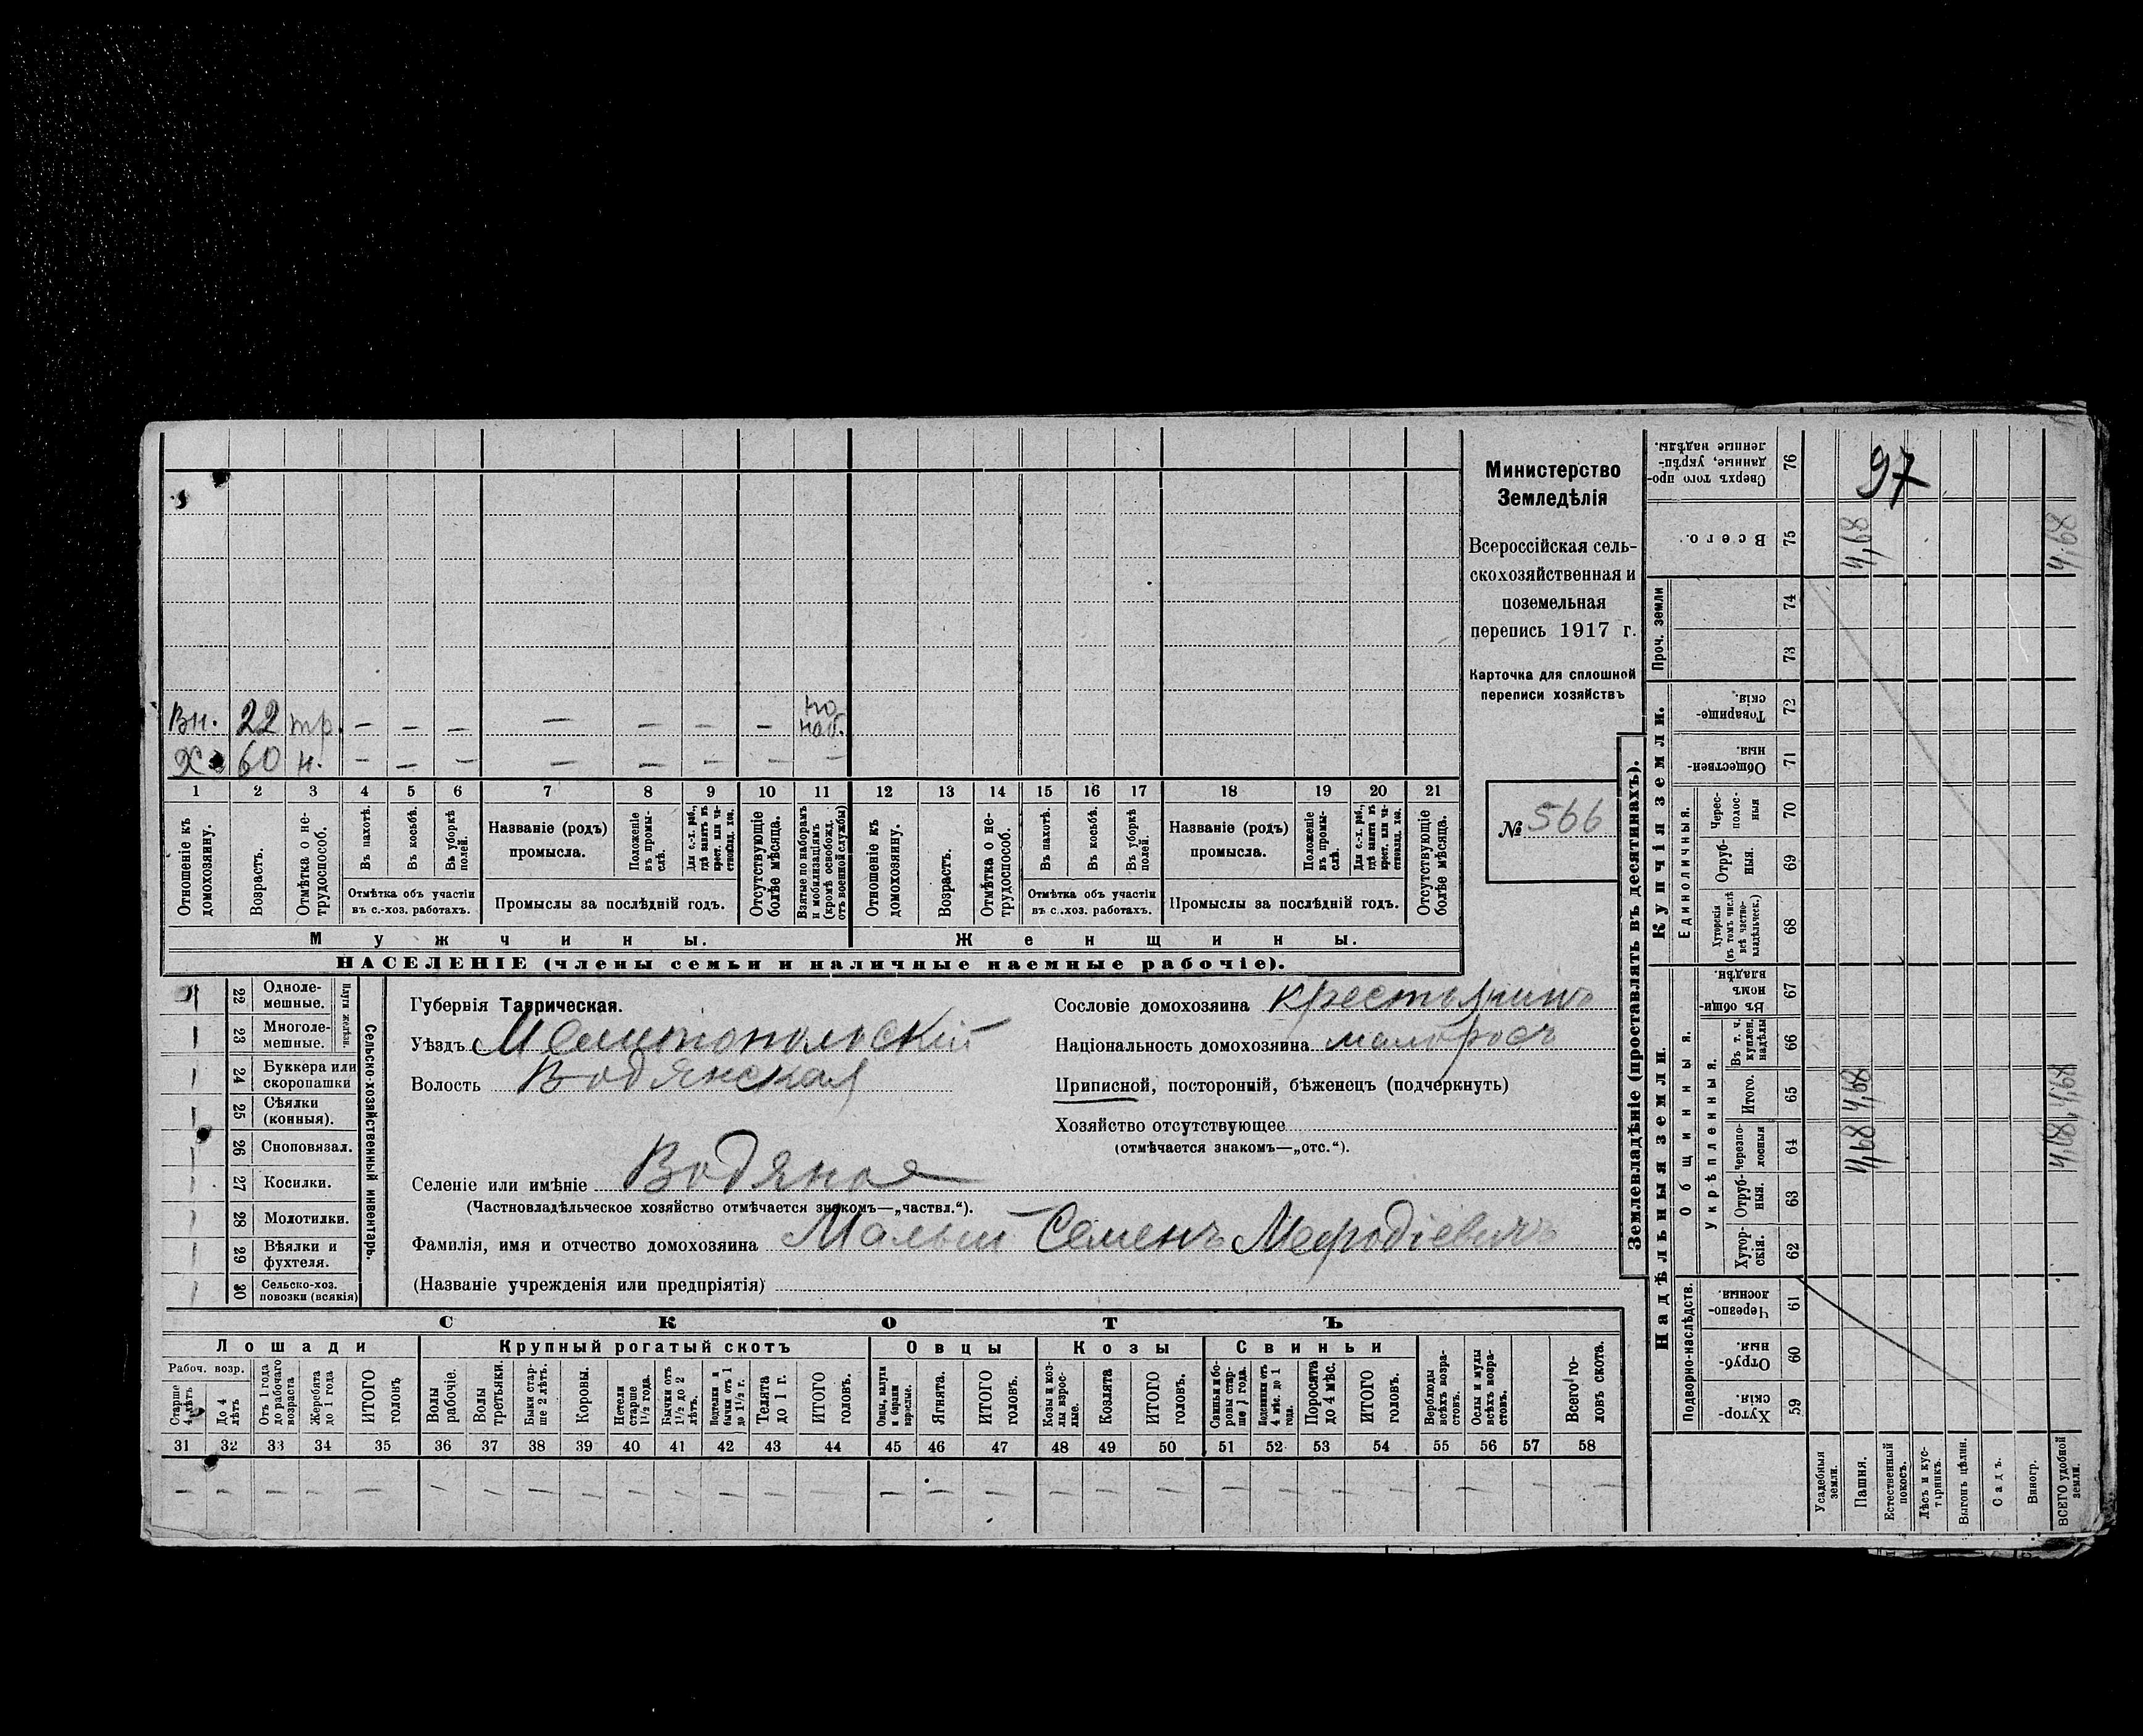 Министерство
Земледѣлія
Всероссійская сель-
скохозяйственная и
поземельная
перепись 1917 г.
Карточка для сплошной
переписи хозяйствъ
№ 566
97
Вн. 22 тр. — — — — — — — по наб.
Хз 60 н. — — — — — — — —
1 2 3 4 5 6 7 8 9 10 11 12 13 14 15 16 17 18 19 20 21
Отношеніе къ домохозяину.
Возрастъ.
Отмѣтка о не-трудоспособ.
Въ пахотѣ.
Въ косьбѣ.
Въ уборкѣ полей.
Отмѣтка объ участіи
въ с.-хоз. работахъ.
Названіе (родъ)
промысла.
Положеніе въ промы-слѣ.
Для с.-х. раб., гдѣ занятъ въ крест. или ча-стновлад. хоз.
Промыслы за послѣдній годъ.
Отсутствующіе болѣе мѣсяца.
Взятые по наборамъ и мобилизаціямъ (кромѣ освобожд. отъ военной службы)
Отношеніе къ домохозяину.
Возрастъ.
Отмѣтка о не-трудоспособ.
Въ пахотѣ.
Въ косьбѣ.
Въ уборкѣ полей.
Отмѣтка объ участіи
въ с..хоз. работахъ.
Названіе (родъ)
промысла.
Положеніе въ промы-слѣ.
Для с.-х. раб., гдѣ занята въ крест. или ча-стновлад. хоз.
Промыслы за послѣдній годъ.
Отсутствующіе болѣе мѣсяца.
Мужчины. Женщины.
НАСЕЛЕНІЕ (члены семьи и наличные наемные рабочіе).
22 Одноле-мешные.
23 Многоле-мешные.
Плуги желѣзн.
24 Буккера или скоропашки
25 Сѣялки (конныя).
26 Сноповязал.
27 Косилки.
28 Молотилки.
29 Вѣялки и фухтеля.
30 Сельско-хоз. повозки (всякія)
Сельско-хозяйственный инвентарь.
Губернія Таврическая.
Уѣздъ Мелитопольскій
Волость Водянская
Селеніе или имѣніе Водяное
(Частновладѣльческое хозяйство отмѣчается знакомъ—„частвл.“).
Фамилія, имя и отчество домохозяина Малыш Семенъ Мефодіевичъ
(Названіе учрежденія или предпріятія)
Сословіе домохозяина крестьянинъ
Національность домохозяина малоросъ
Приписной, посторонній, бѣженецъ (подчеркнуть)
Хозяйство отсутствующее
(отмѣчается знакомъ—„отс.“).
СКОТЪ
Лошади Крупный рогатый скотъ Овцы Козы Свиньи
Рабоч. возр.
Старше 4 лѣтъ
До 4 лѣтъ
Отъ 1 года до рабочаго возраста
Жеребята до 1 года
ИТОГО головъ
Волы рабочіе.
Волы третьяки.
Быки стар-ше 2 лѣтъ.
Коровы.
Нетели старше 1½ года.
Бычки отъ 1½ до 2 лѣтъ.
Подтелки и бычки отъ 1 до 1½ г.
Телята до 1 г.
ИТОГО головъ.
Овцы, валухи и бараны взрослые.
Ягнята.
ИТОГО головъ.
Козы и коз-лы взрос-лые.
Козлята
ИТОГО головъ.
Свиньи и бо-ровы стар-ше 1 года.
Подсвинки отъ 4 мѣс. до 1 года.
Поросята до 4 мѣс.
ИТОГО головъ.
Верблюды всѣхъ возра-стовъ.
Ослы и мулы всѣхъ возра-стовъ.
Всего го-ловъ скота.
31 32 33 34 35 36 37 38 39 40 41 42 43 44 45 46 47 48 49 50 51 52 53 54 55 56 57 58
Землевладѣніе (проставлять въ десятинахъ).
Надѣльныя земли.
Купчія земли.
Проч. земли
Подворно-наслѣдств.
Общинныя.
Укрѣпленныя.
Единоличныя.
59 Хутор-скія.
60 Отруб-ныя.
61 Черезпо-лосныя.
62 Хутор-скія.
63 Отруб-ныя.
64 Черезпо-лосныя
65 Итого.
66 Въ т. ч. куплен. надѣлы
67 Въ общин-номъ владѣн.
68 Хуторскія (въ томъ числѣ всѣ частно-владѣльческ.)
69 Отруб-ныя.
70 Черес-полос-ныя
71 Обществен-ныя.
72 Товарище-скія.
73
74
75 Всего.
76 Сверхъ того про-данные, укрѣп-ленные надѣлы.
Усадебныя земли.
Пашня. 4,68 4,68 4,68
Естественный покосъ.
Лѣсъ и кус-тарникъ.
Выгонъ цѣлин.
Садъ.
Виногр.
ВСЕГО удобной земли. 4,68 4,68 4,68